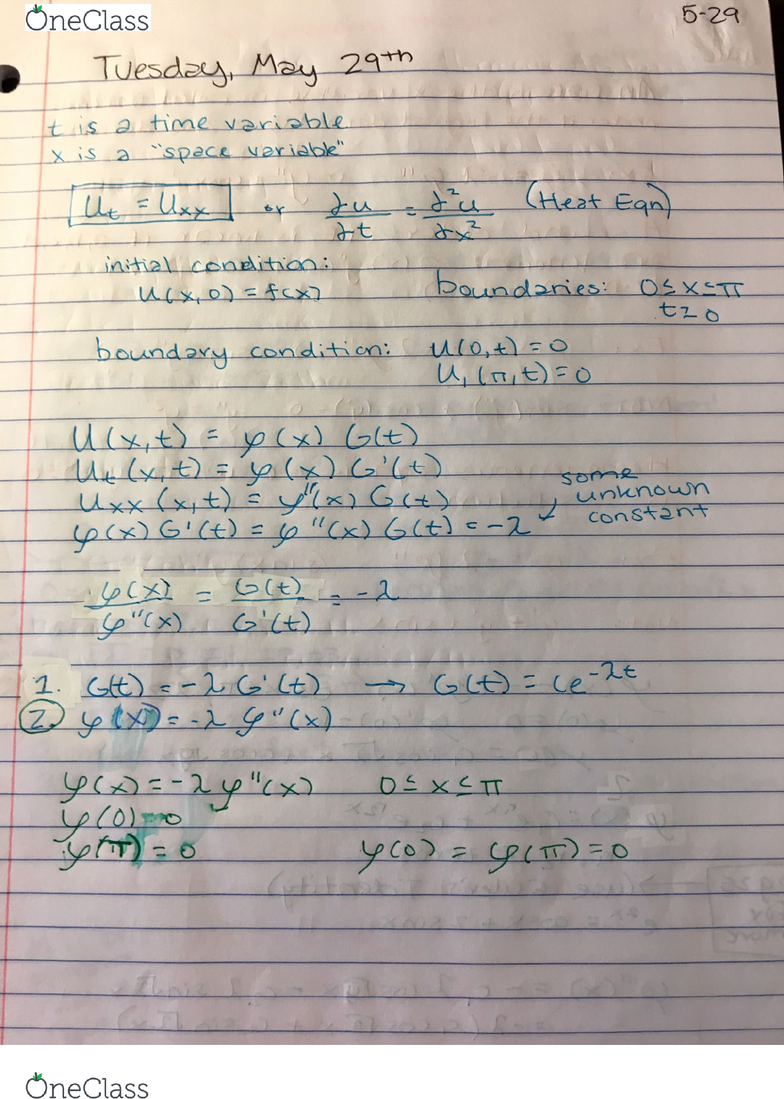 OneClass
5-29
Tuesday, May 29th
t is a time variable
x is a "space variable"
Ut = Uxx or ∂u/∂t = ∂²u/∂x² (Heat Eqn)
initial condition:
U(x,0) = f(x)
boundaries: 0≤x≤π
t≥0
boundary condition: U(0,t) = 0
U,(π,t)=0
U(x,t) = φ(x) G(t)
Ut(x,t) = φ(x) G'(t)
Uxx(x,t) = φ"(x) G(t)
φ(x) G'(t) = φ"(x) G(t) = -λ
some
unknown
constant
φ(x)/φ"(x) = G(t)/G'(t) = -λ
1. G(t) = -λ G'(t) → G(t) = ce^-λt
2. φ(x) = -λ φ"(x)
φ(x) = -λ φ"(x) 0≤x≤π
φ(0)=0
φ(π)=0 φ(0) = φ(π)=0
OneClass